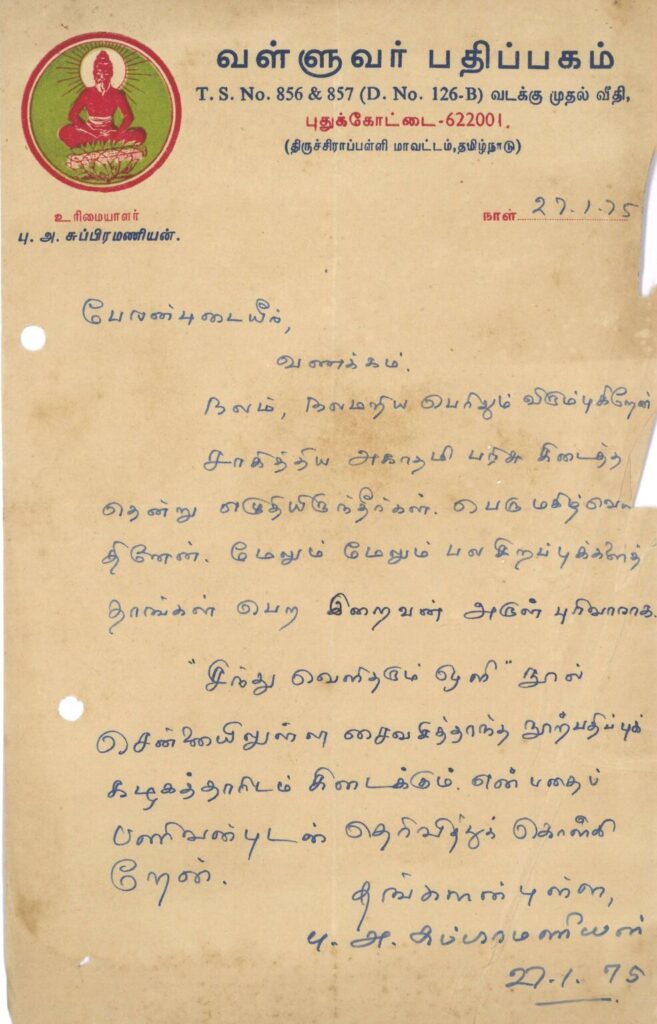 வள்ளுவர் பதிப்பகம்
T. S. No. 856 & 857 (D. No. 126-B) வடக்கு முதல் வீதி,
புதுக்கோட்டை-622001.
(திருச்சிராப்பள்ளி மாவட்டம்,தமிழ்நாடு)
உரிமையாளர்
பு. அ. சுப்பிரமணியன்.
நாள் 27.1.75
பேரன்புடையீர்,
வணக்கம்.
நலம், நலமறிய பெரிதும் விரும்புகிறேன்
சாகித்திய அகாதமி பரிசு கிடைத்த
தென்று எழுதியிருந்தீர்கள். பெரு மகிழ்வெய்
தினேன். மேலும் மேலும் பல சிறப்புக்களைத்
தாங்கள் பெற இறைவன் அருள் புரிவாராக.
"சிந்து வெளிதரும் ஒளி" நூல்
சென்னையிலுள்ள சைவசித்தாந்த நூற்பதிப்புக்
கழகத்தாரிடம் கிடைக்கும். என்பதைப்
பணிவன்புடன் தெரிவித்துக் கொள்கி
றேன்.
தங்களன்புள்ள,
பு. அ. சுப்ரமணியன்
27.1.75